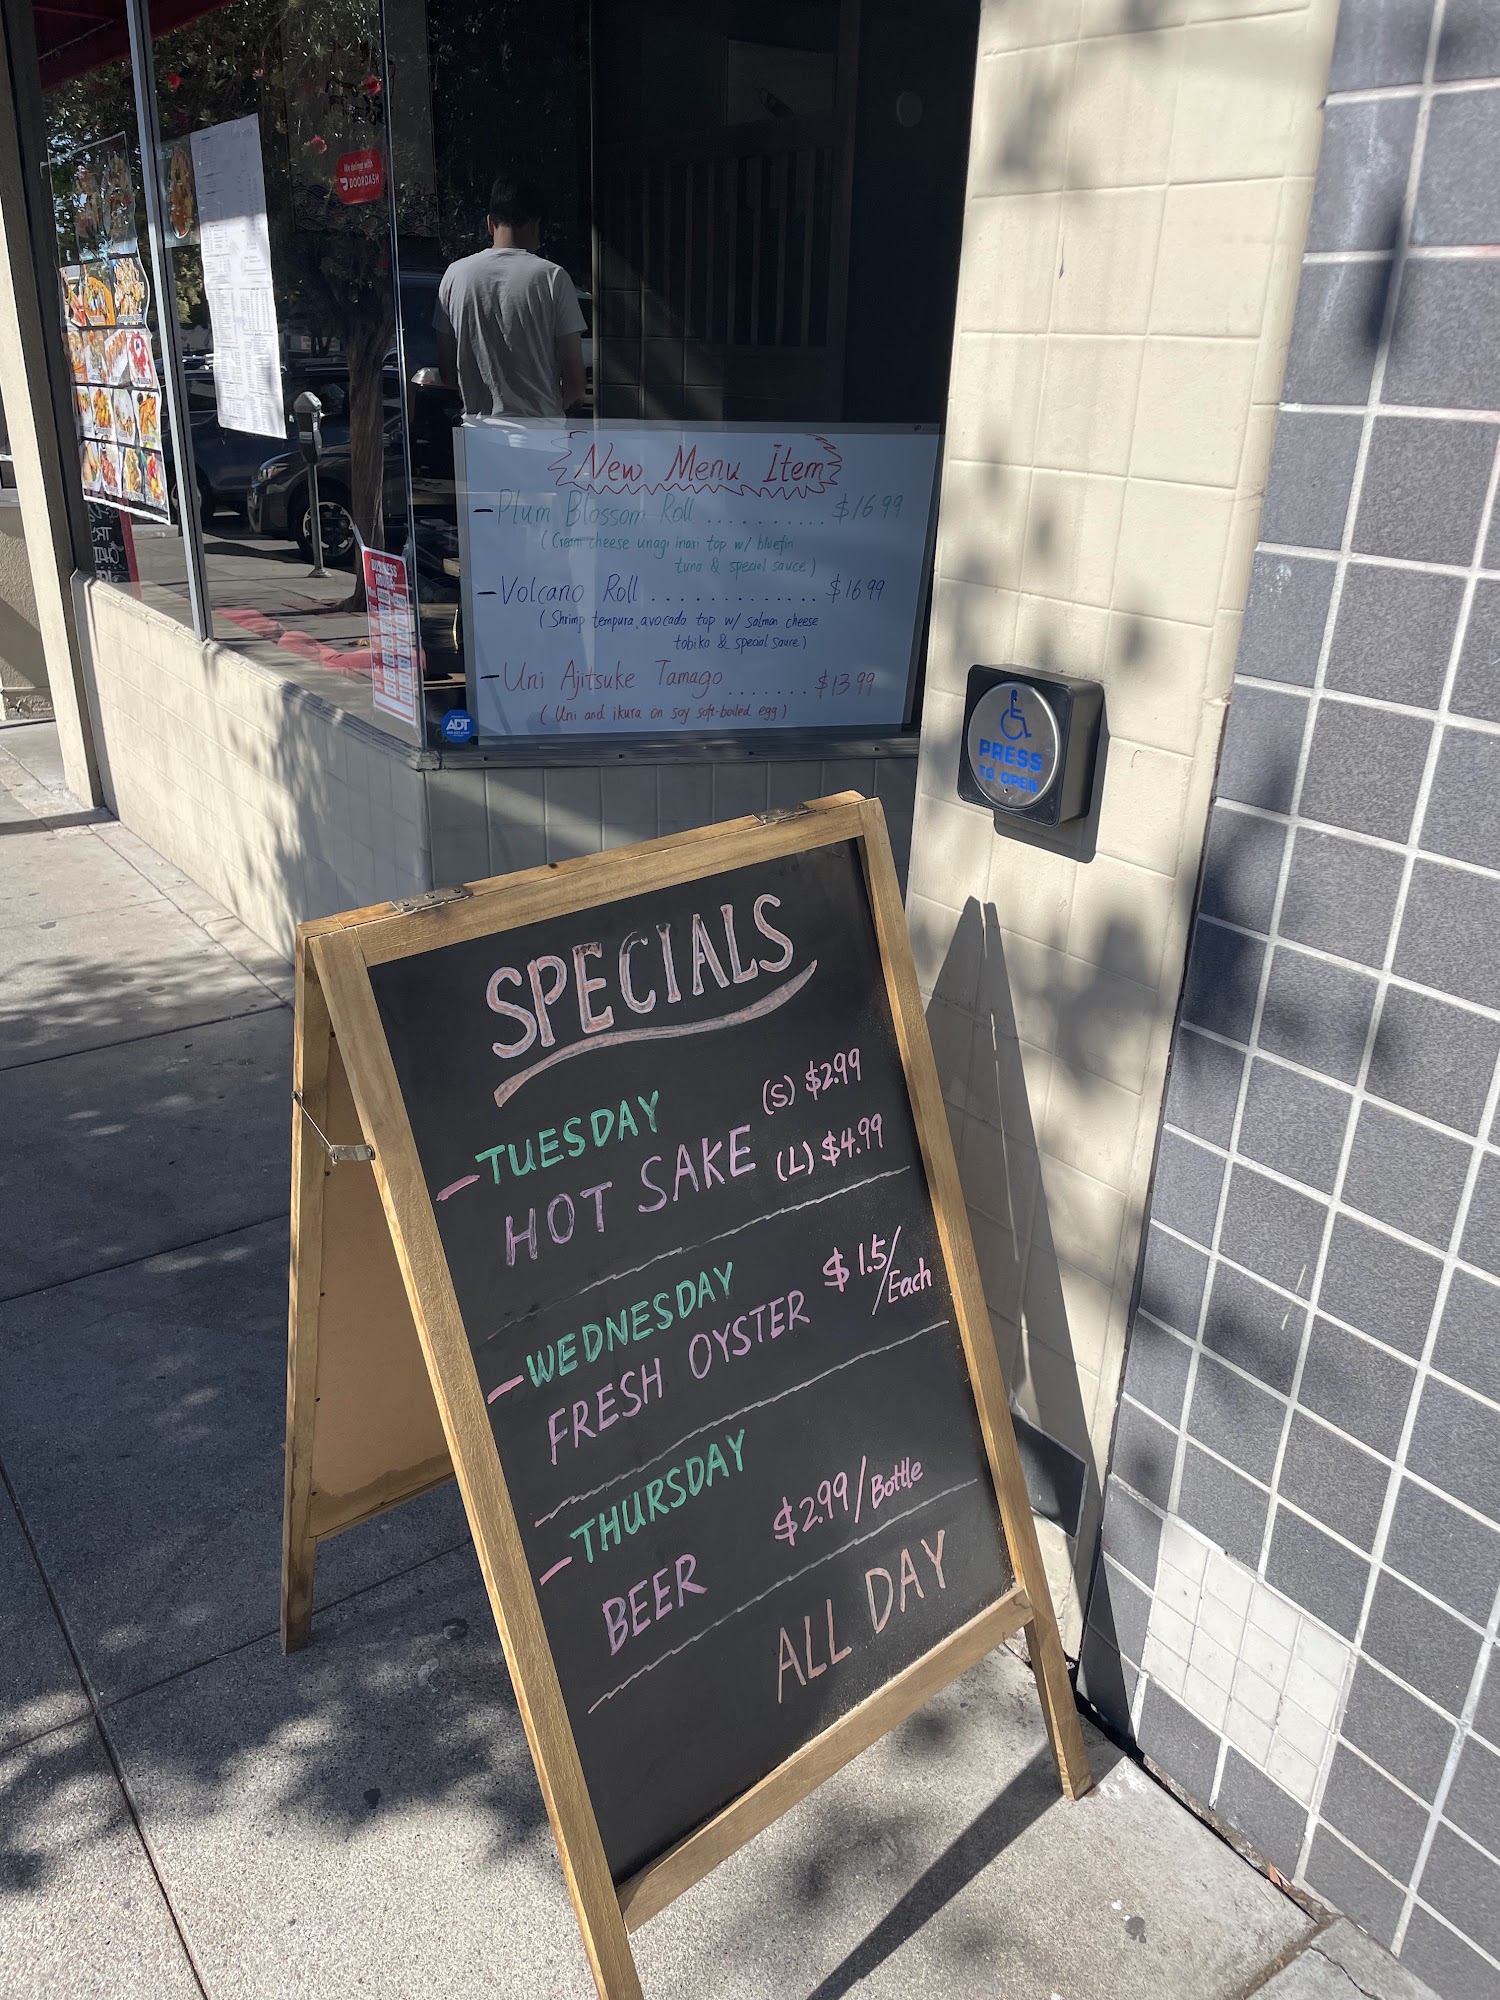 We deliver with
DOORDASH
New Menu Item
- Plum Blossom Roll .......... $16.99
(Cream cheese unagi inari top w/ bluefin
tuna & special sauce)
- Volcano Roll ............. $16.99
(Shrimp tempura, avocado top w/ salmon cheese
tobiko & special sauce)
- Uni Ajitsuke Tamago ....... $13.99
(Uni and ikura on soy soft-boiled egg)
BUSINESS
HOURS
ADT
PRESS
TO OPEN
SPECIALS
- TUESDAY (S) $2.99
HOT SAKE (L) $4.99
- WEDNESDAY $1.5/Each
FRESH OYSTER
- THURSDAY $2.99/Bottle
BEER
ALL DAY